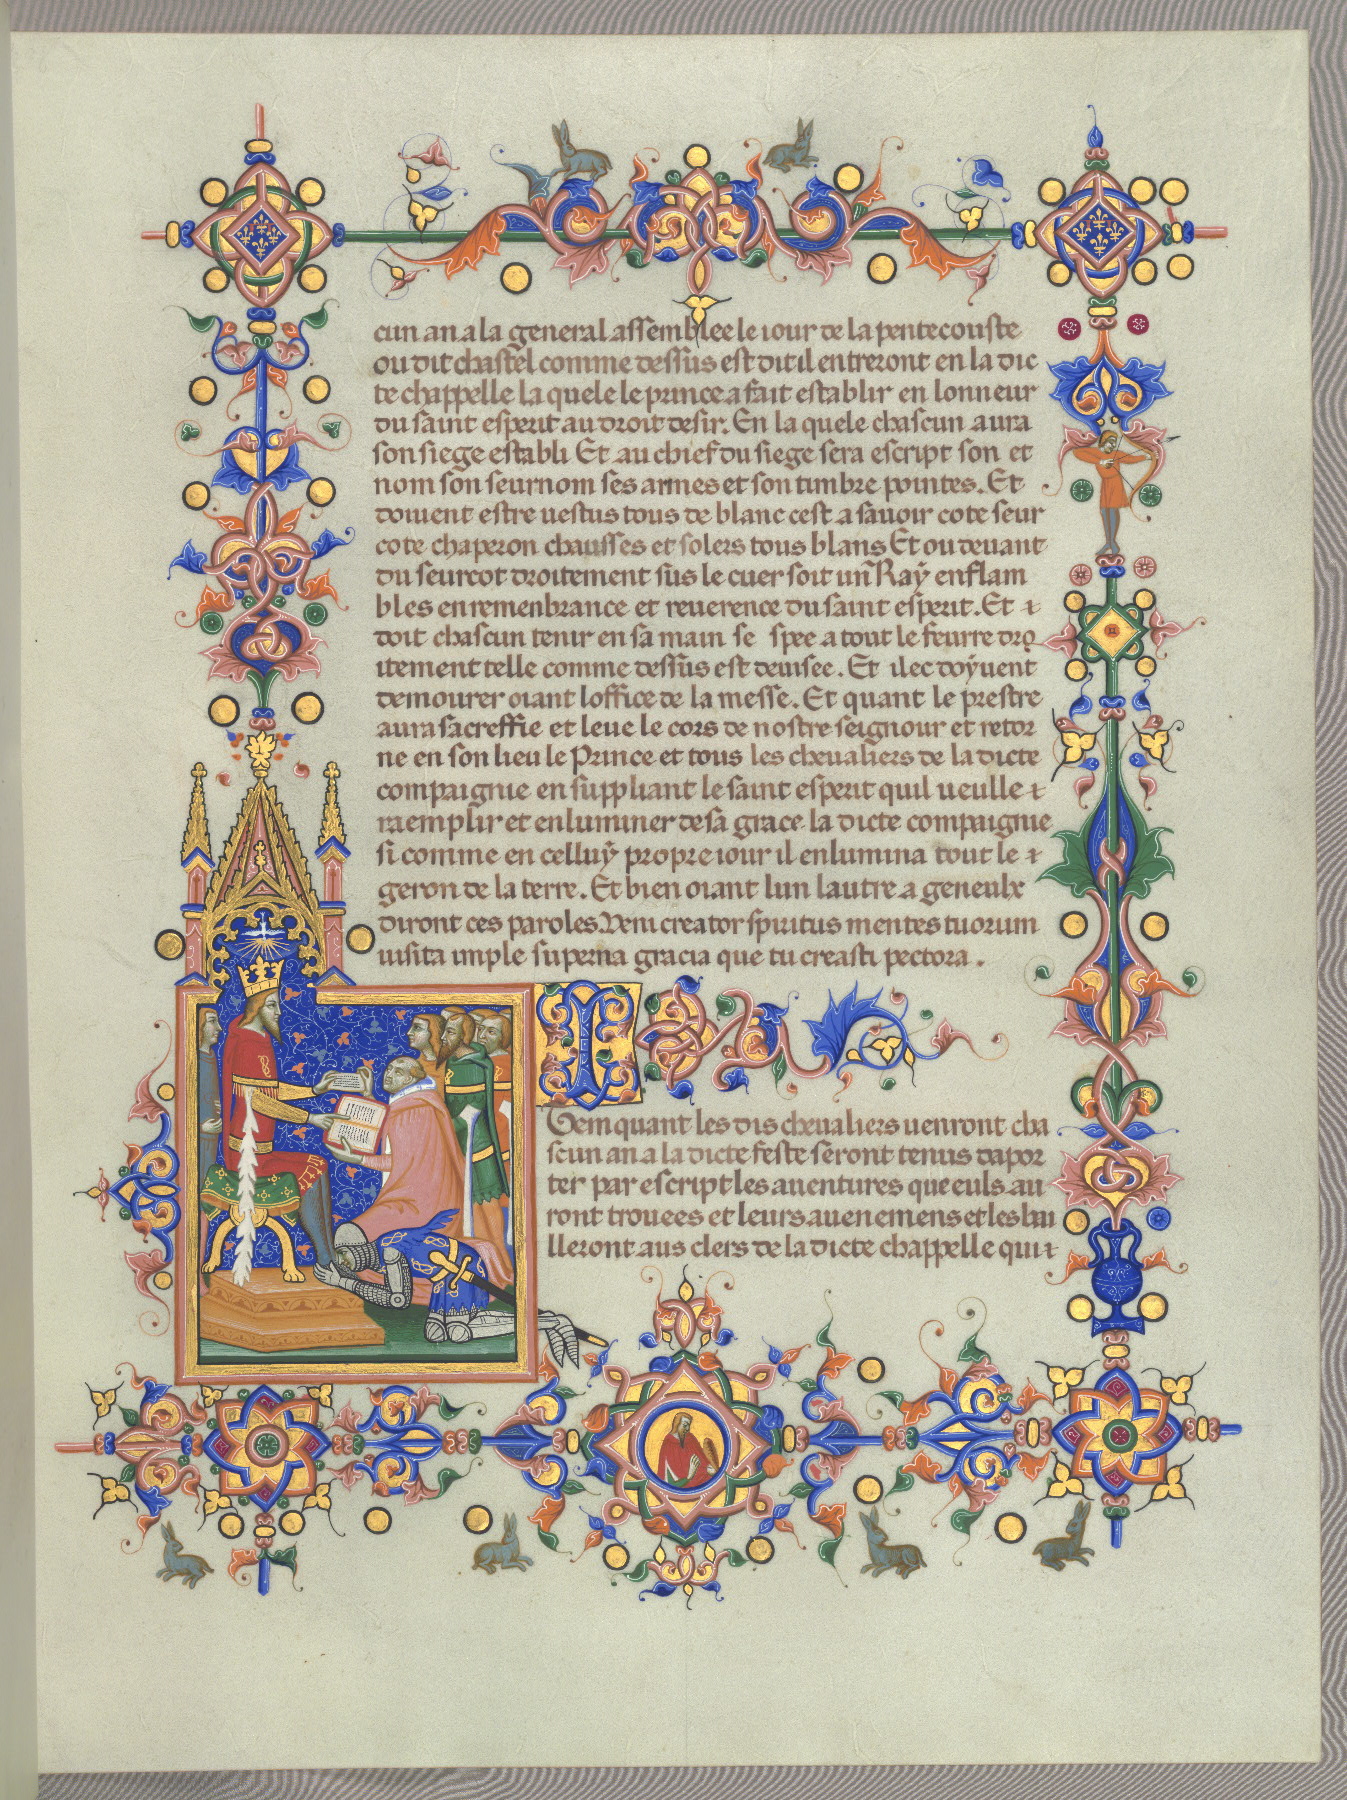 cun an a la general assemblee le iour de la pentecouste
ou dit chastel comme dessus est dit il entreront en la dic
te chappelle la quele le prince a fait establir en lonneur
du saint esperit au droit desir. En la quele chascun aura
son siege establi Et au chief du siege sera escript son et
nom son seurnom ses armes et son timbre pointes. Et
doiuent estre uestus tous de blanc cest a sauoir cote seur
cote chaperon chausses et solers tous blans Et ou deuant
du seurcot droitement sus le cuer soit un Raÿ enflam
bles en remenbrance et reuerence du saint esperit. Et
doit chascun tenir en sa main se spee a tout le feurre dro
itement telle comme dessus est deuisee. Et ilec doyuent
demourer oiant loffice de la messe. Et quant le prestre
aura sacreffie et leue le cors de nostre seignour et retor
ne en son lieu le Prince et tous les cheualiers de la dicte
compaignie en suppliant le saint esperit quil ueulle
raemplir et enluminer de sa grace la dicte compaignie
si comme en celluÿ propre iour il enlumina tout le
geron de la terre. Et bien oiant lun lautre a geneulx
diront ces paroles Veni creator spiritus mentes tuorum
uisita imple superna gracia que tu creasti pectora.
Item quant les dis cheualiers uenront cha
scun an a la dicte feste seront tenus dapor
ter par escript les auentures que euls au
ront trouees et leurs auenemens et les bai
lleront aus clers de la dicte chappelle qui